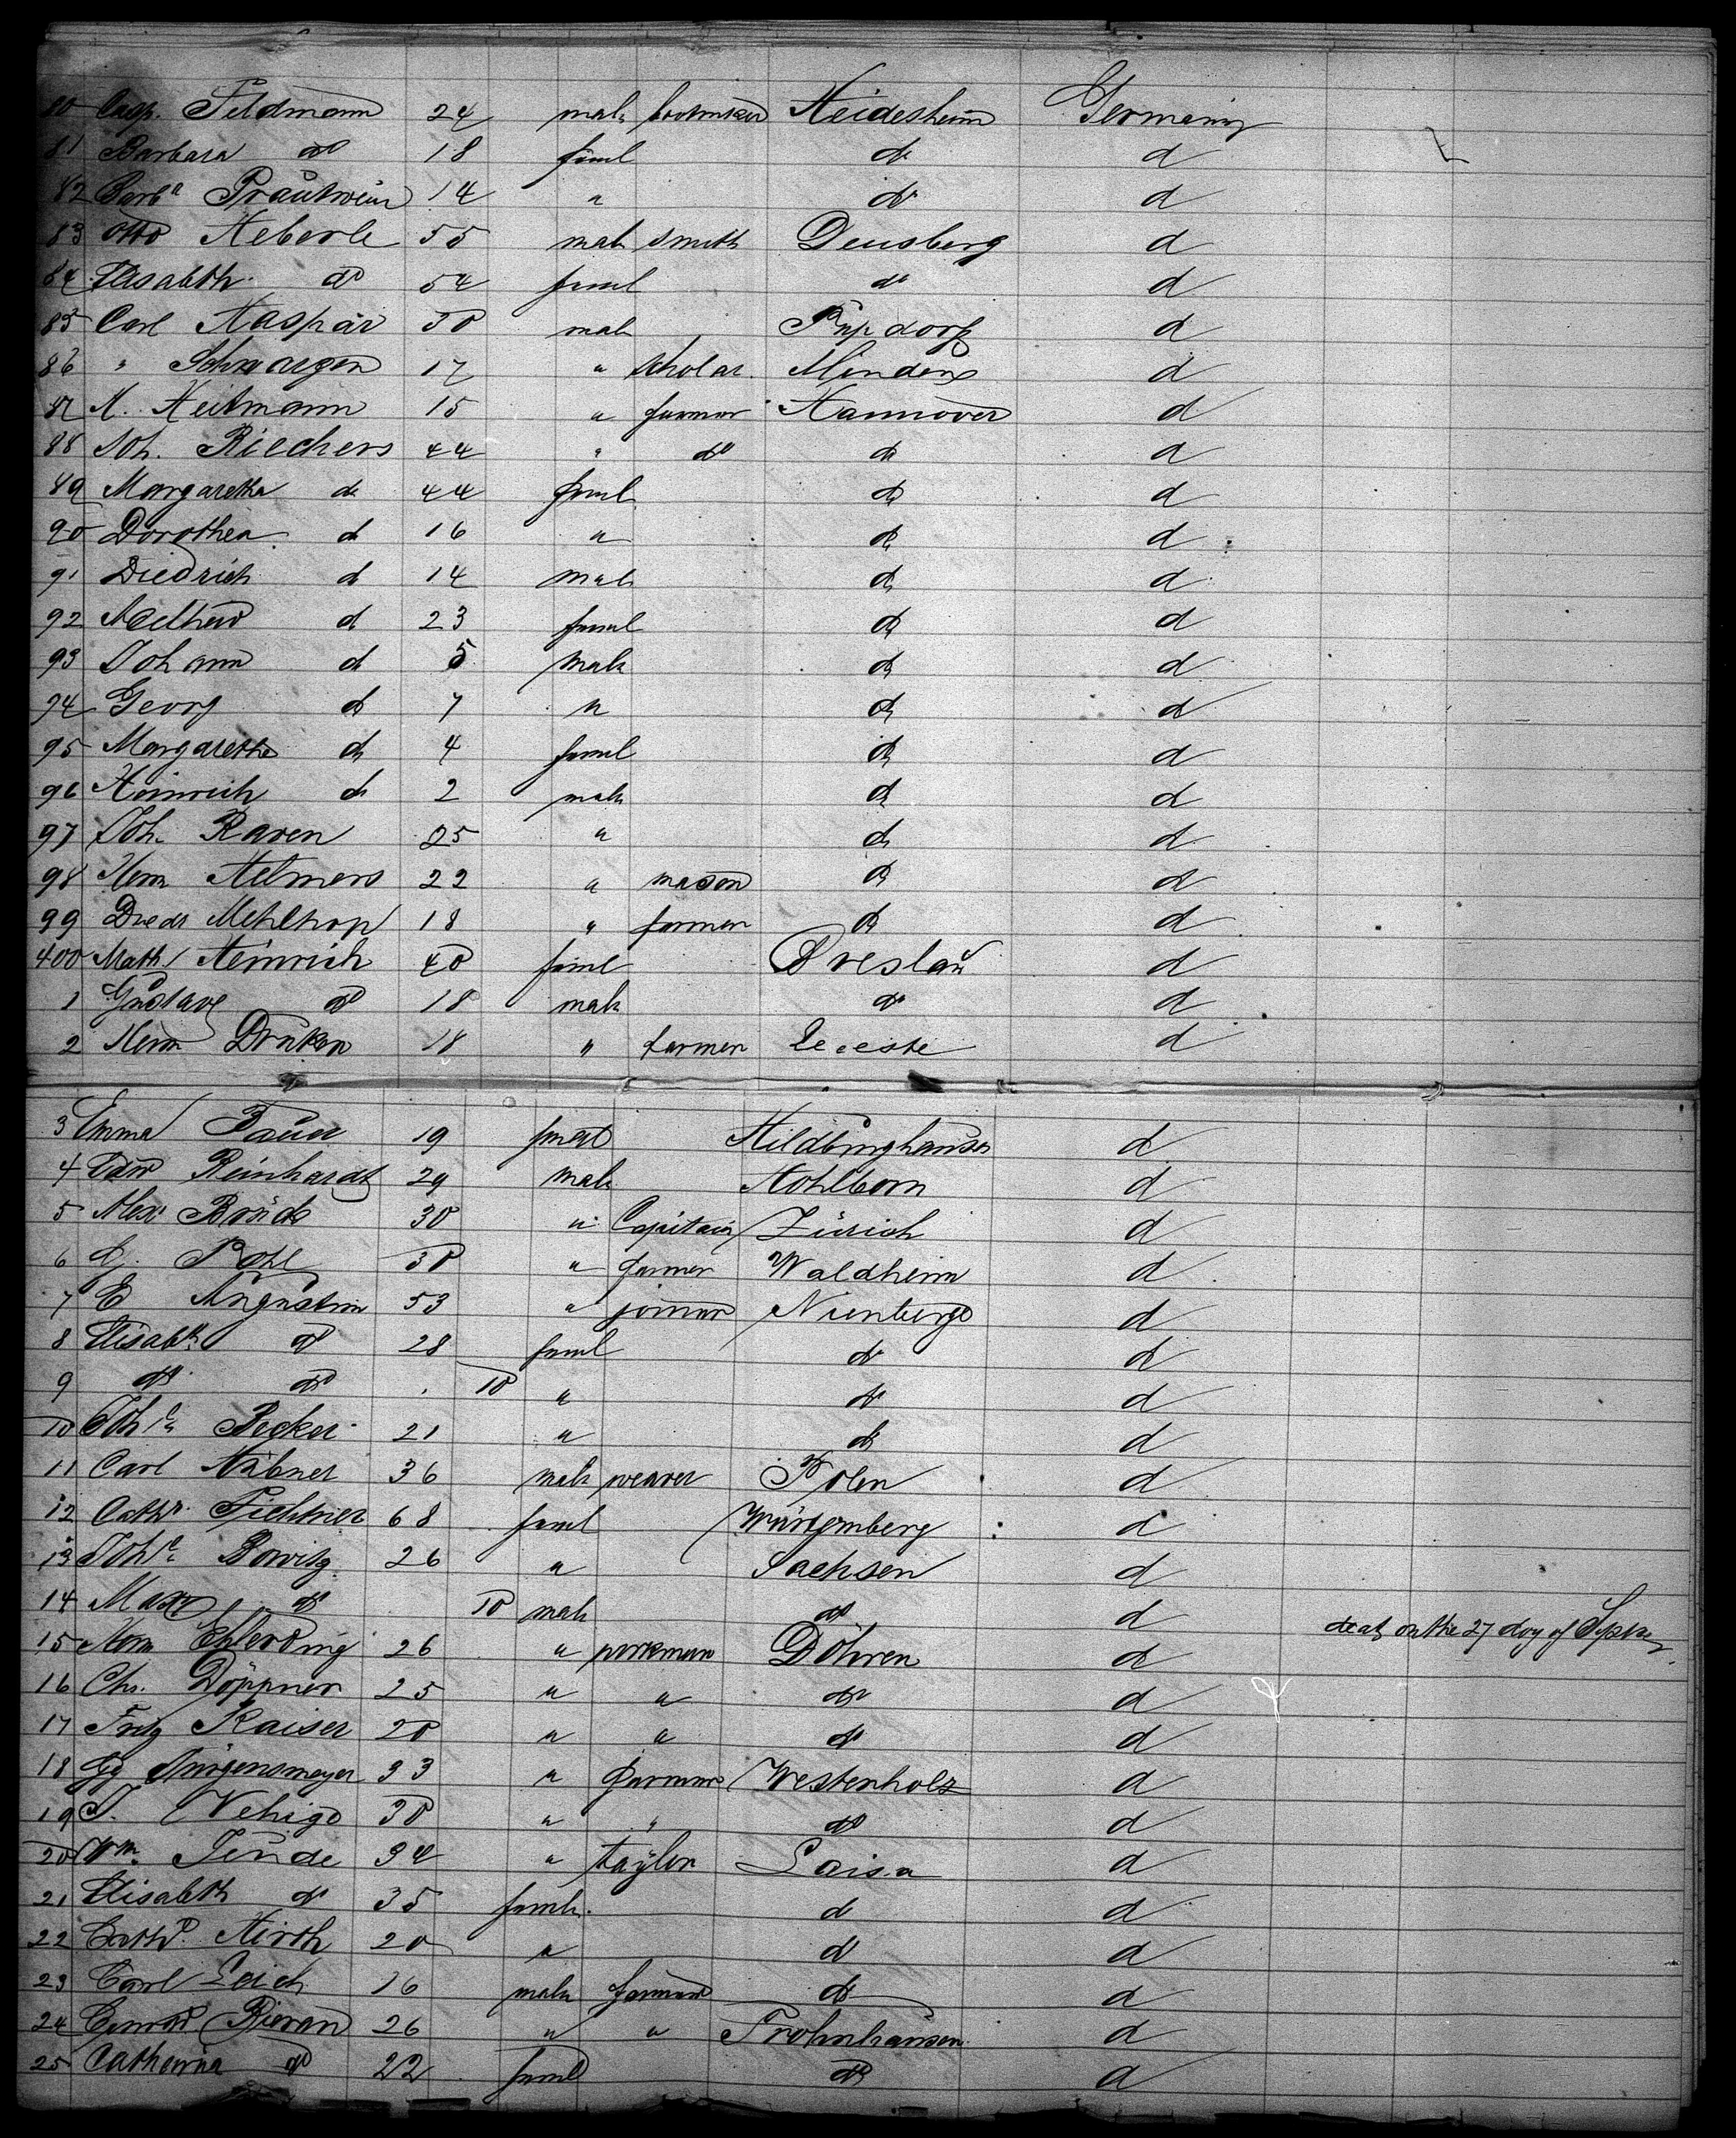 80 Casp. Feldmann 24 male bootmaker Heidesheim Germany
81 Barbara do 18 feml do d
82 Barba Trautwein 14 " do d
83 Otto Heberle 55 male Smith Densberg d
84 Elisabeth do 54 feml do d
85 Carl Kaspar 30 male d
86 " 17 " Scholar Minden d
87 H. Heitmann 15 " farmer Hannover d
88 Joh. Riechers 44 " do do d
89 Margaretha do 44 feml do d
90 Dorothea d 16 " do d
91 Diedrich d 14 male do d
92 d 23 feml do d
93 Johann d 5 male do d
94 Georg d 7 " do d
95 Margarethe do 4 feml do d
96 Heinrich do 2 male do d
97 Joh. Raven 25 " do d
98 Herm Helmers 22 " mason do d
99 Diedr Mehlhop 18 " farmer do d
400 Math Heinrich 40 feml Breslau d
1 Gustave do 18 male do d
2 Herm Dröken 18 " farmer Leeste d
3 Emma Bauer 19 feml Hildburghausen d
4 Edw Reinhardt 29 male Kohlborn d
5 Alex 30 " Capitain Zürich d
6 G. Pohl 30 " farmer Waldheim d
7 E Augustin 53 " joiner Nienburg d
8 Elisabth do 28 feml do d
9 do do 10 " do d
10 Joh. Becker 21 " do d
11 Carl Hübner 36 male weaver Polen d
12 Cathr. Fichtner 68 feml Würtemberg d
13 Joh. 26 " Sachsen d
14 Max do 10 male do d death on the 27 day of Septbr
15 Herm Ehlerding 26 " workman Döhren d
16 Chr. Döppner 25 " " do d
17 Fritz Kaiser 20 " " do d
18 Gg Jürgensmeyer 33 " farmer Westenholz d
19 J. Nehige 30 " " do d
20 Wm. 34 " taylor Laisa d
21 Elisabeth do 35 femle d
22 Cath. Hirth 20 " d d
23 Carl Leich 16 male farmer do d
24 Conrad 26 " " Frohnhausen d
25 Catharina do 22 feml do d